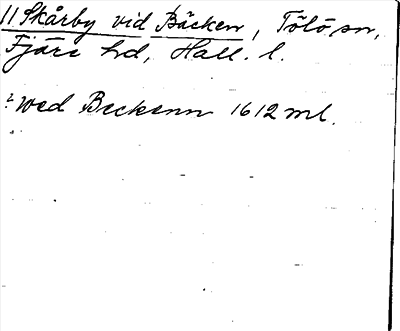 11 Skårby vid Bäcken, Tölö sn,
Fjäre hd, Hall. l.
? wed Beckenn 1612 ml.